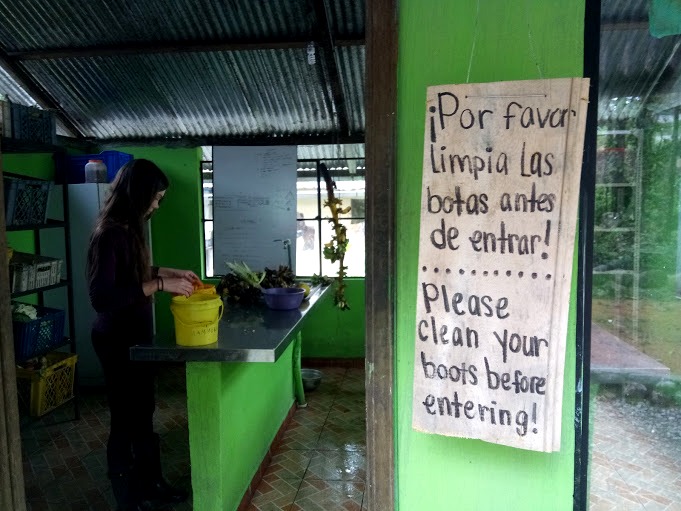 ¡Por favor
limpia las
botas antes
de entrar!
Please
clean your
boots before
entering!